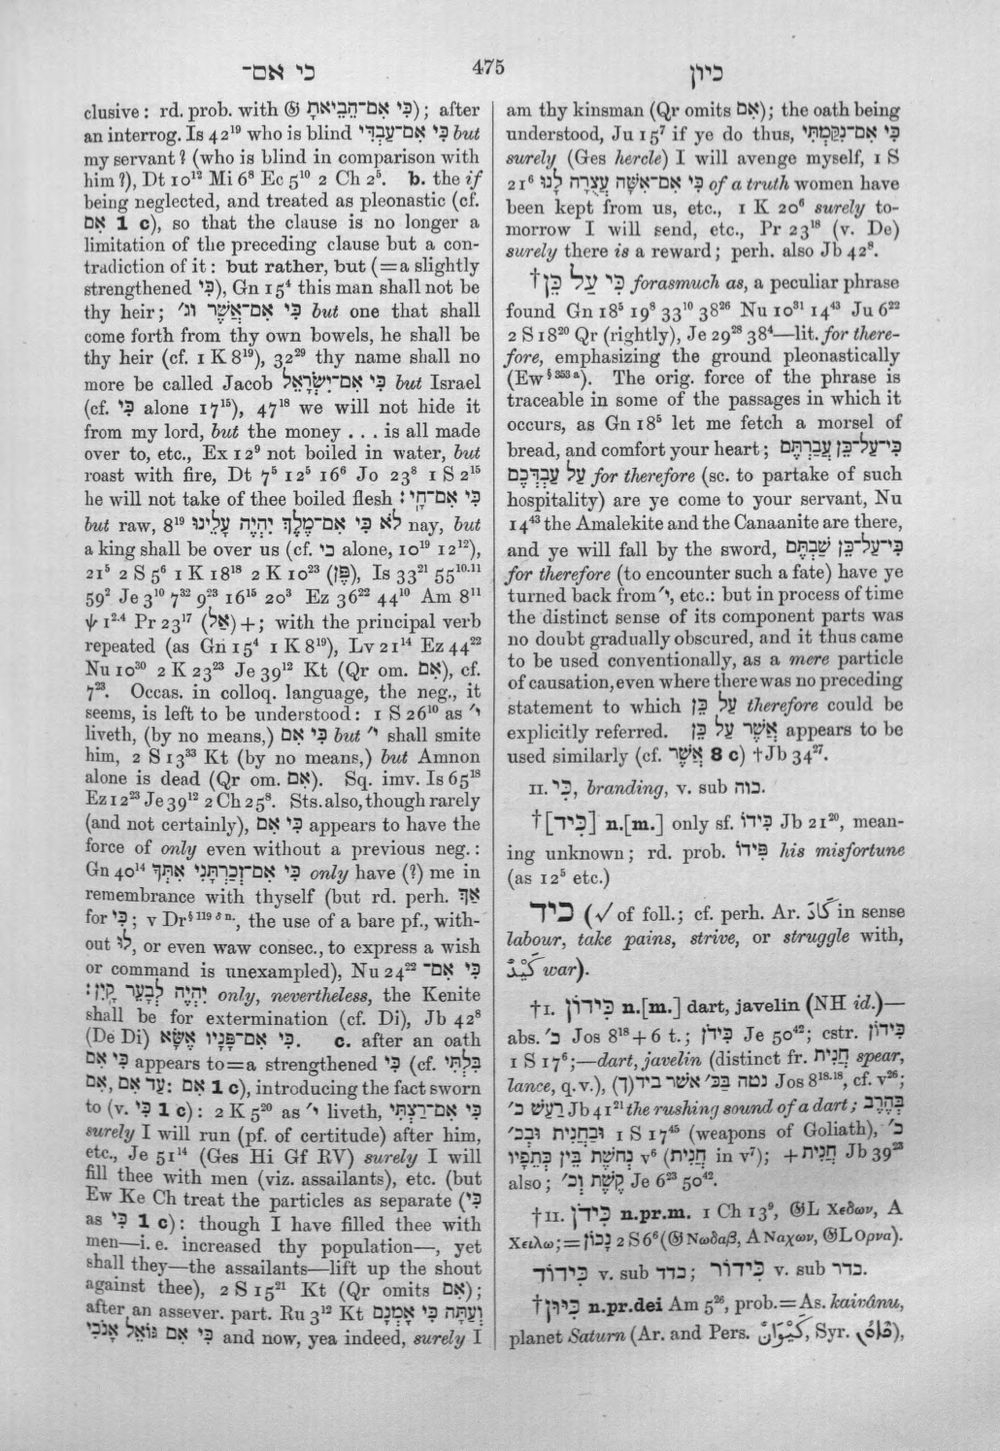 כי אם־
475
כיון
clusive : rd. prob. with 𝔊 כִּי אִם־הֲבִיאתָ); after
an interrog. Is 42¹⁹ who is blind כִּי אִם־עַבְדִּי but
my servant? (who is blind in comparison with
him?), Dt 10¹² Mi 6⁸ Ec 5¹⁰ 2 Ch 2⁵. b. the if
being neglected, and treated as pleonastic (cf.
אִם 1 c), so that the clause is no longer a
limitation of the preceding clause but a con-
tradiction of it : but rather, but (=a slightly
strengthened כִּי), Gn 15⁴ this man shall not be
thy heir; כִּי אִם־אֲשֶׁר וג׳ but one that shall
come forth from thy own bowels, he shall be
thy heir (cf. 1 K 8¹⁹), 32²⁹ thy name shall no
more be called Jacob כִּי אִם־יִשְׂרָאֵל but Israel
(cf. כִּי alone 17¹⁵), 47¹⁸ we will not hide it
from my lord, but the money . . . is all made
over to, etc., Ex 12⁹ not boiled in water, but
roast with fire, Dt 7⁵ 12⁵ 16⁶ Jo 23⁸ 1 S 2¹⁵
he will not take of thee boiled flesh כִּי אִם־חָי׃
but raw, 8¹⁹ לֹא כִּי אִם־מֶלֶךְ יִהְיֶה עָלֵינוּ nay, but
a king shall be over us (cf. כי alone, 10¹⁹ 12¹²),
21⁵ 2 S 5⁶ 1 K 18¹⁸ 2 K 10²³ (פֶּן), Is 33²¹ 55¹⁰·¹¹
59² Je 3¹⁰ 7³² 9²³ 16¹⁵ 20³ Ez 36²² 44¹⁰ Am 8¹¹
ψ 1²·⁴ Pr 23¹⁷ (אַל)+; with the principal verb
repeated (as Gn 15⁴ 1 K 8¹⁹), Lv 21¹⁴ Ez 44²²
Nu 10³⁰ 2 K 23²³ Je 39¹² Kt (Qr om. אִם), cf.
7²³. Occas. in colloq. language, the neg., it
seems, is left to be understood: 1 S 26¹⁰ as ׳י
liveth, (by no means,) כִּי אִם but ׳י shall smite
him, 2 S 13³³ Kt (by no means,) but Amnon
alone is dead (Qr om. אִם). Sq. imv. Is 65¹⁸
Ez 12²³ Je 39¹² 2 Ch 25⁸. Sts. also, though rarely
(and not certainly), כִּי אִם appears to have the
force of only even without a previous neg.:
Gn 40¹⁴ כִּי אִם־זְכַרְתַּנִי אִתְּךָ only have (?) me in
remembrance with thyself (but rd. perh. אַךְ
for כִּי; v Dr§ ¹¹⁹ δ ⁿ·, the use of a bare pf., with-
out לוּ, or even waw consec., to express a wish
or command is unexampled), Nu 24²² כִּי אִם־
יִהְיֶה לְבָעֵר קָיִן׃ only, nevertheless, the Kenite
shall be for extermination (cf. Di), Jb 42⁸
(De Di) כִּי אִם־פָּנָיו אֶשָּׂא. c. after an oath
כִּי אִם appears to=a strengthened כִּי (cf. בִּלְתִּי
אִם, עַד אִם: אִם 1 c), introducing the fact sworn
to (v. כִּי 1 c): 2 K 5²⁰ as ׳י liveth, כִּי אִם־רַצְתִּי
surely I will run (pf. of certitude) after him,
etc., Je 51¹⁴ (Ges Hi Gf RV) surely I will
fill thee with men (viz. assailants), etc. (but
Ew Ke Ch treat the particles as separate (כִּי
as כִּי 1 c): though I have filled thee with
men—i. e. increased thy population—, yet
shall they—the assailants—lift up the shout
against thee), 2 S 15²¹ Kt (Qr omits אִם);
after an assever. part. Ru 3¹² Kt וְעַתָּה כִּי אָמְנָם
כִּי אִם גּוֹאֵל אָנֹכִי and now, yea indeed, surely I
am thy kinsman (Qr omits אִם); the oath being
understood, Ju 15⁷ if ye do thus, כִּי אִם־נִקַּמְתִּי
surely (Ges hercle) I will avenge myself, 1 S
21⁶ כִּי אִם־אִשָּׁה עֲצֻרָה לָנוּ of a truth women have
been kept from us, etc., 1 K 20⁶ surely to-
morrow I will send, etc., Pr 23¹⁸ (v. De)
surely there is a reward; perh. also Jb 42⁸.
†כִּי עַל כֵּן forasmuch as, a peculiar phrase
found Gn 18⁵ 19⁸ 33¹⁰ 38²⁶ Nu 10³¹ 14⁴³ Ju 6²²
2 S 18²⁰ Qr (rightly), Je 29²⁸ 38⁴—lit. for there-
fore, emphasizing the ground pleonastically
(Ew§ ³⁵³ ᵃ). The orig. force of the phrase is
traceable in some of the passages in which it
occurs, as Gn 18⁵ let me fetch a morsel of
bread, and comfort your heart; כִּי־עַל־כֵּן עֲבַרְתֶּם
עַל עַבְדְּכֶם for therefore (sc. to partake of such
hospitality) are ye come to your servant, Nu
14⁴³ the Amalekite and the Canaanite are there,
and ye will fall by the sword, כִּי־עַל־כֵּן שַׁבְתֶּם
for therefore (to encounter such a fate) have ye
turned back from ׳י, etc.: but in process of time
the distinct sense of its component parts was
no doubt gradually obscured, and it thus came
to be used conventionally, as a mere particle
of causation, even where there was no preceding
statement to which עַל כֵּן therefore could be
explicitly referred. אֲשֶׁר עַל כֵּן appears to be
used similarly (cf. אֲשֶׁר 8 c) †Jb 34²⁷.
II. כִּי, branding, v. sub כוה.
†[כִּיד] n.[m.] only sf. כִּידוֹ Jb 21²⁰, mean-
ing unknown; rd. prob. פִּידוֹ his misfortune
(as 12⁵ etc.)
כיד (√ of foll.; cf. perh. Ar. كَادَ in sense
labour, take pains, strive, or struggle with,
كَيْدٌ war).
†I. כִּידוֹן n.[m.] dart, javelin (NH id.)—
abs. כ׳ Jos 8¹⁸ + 6 t.; כִּידֹן Je 50⁴²; cstr. כִּידוֹן
1 S 17⁶;—dart, javelin (distinct fr. חֲנִית spear,
lance, q.v.), נטה בַּכּ׳ אשר ביד(ךָ) Jos 8¹⁸·¹⁸, cf. v²⁶;
רַעַשׁ כ׳ Jb 41²¹ the rushing sound of a dart; בְּחֶרֶב
וּבַחֲנִית וּבְכ׳ 1 S 17⁴⁵ (weapons of Goliath), כ׳
נְחשֶׁת בֵּין כְּתֵפָיו v⁶ (חֲנִית in v⁷); +חֲנִית Jb 39²³
also; קֶשֶׁת וְכ׳ Je 6²³ 50⁴².
†II. כִּידֹן n.pr.m. 1 Ch 13⁹, 𝔊L Χεδων, A
Χειλω;=נָכוֹן 2 S 6⁶ (𝔊 Νωδαβ, A Ναχων, 𝔊L Ορνα).
כִּידוֹד v. sub כדד; כִּידוֹר v. sub כדר.
†כִּיּוּן n.pr.dei Am 5²⁶, prob.=As. kaivânu,
planet Saturn (Ar. and Pers. كَيْوَانُ, Syr.